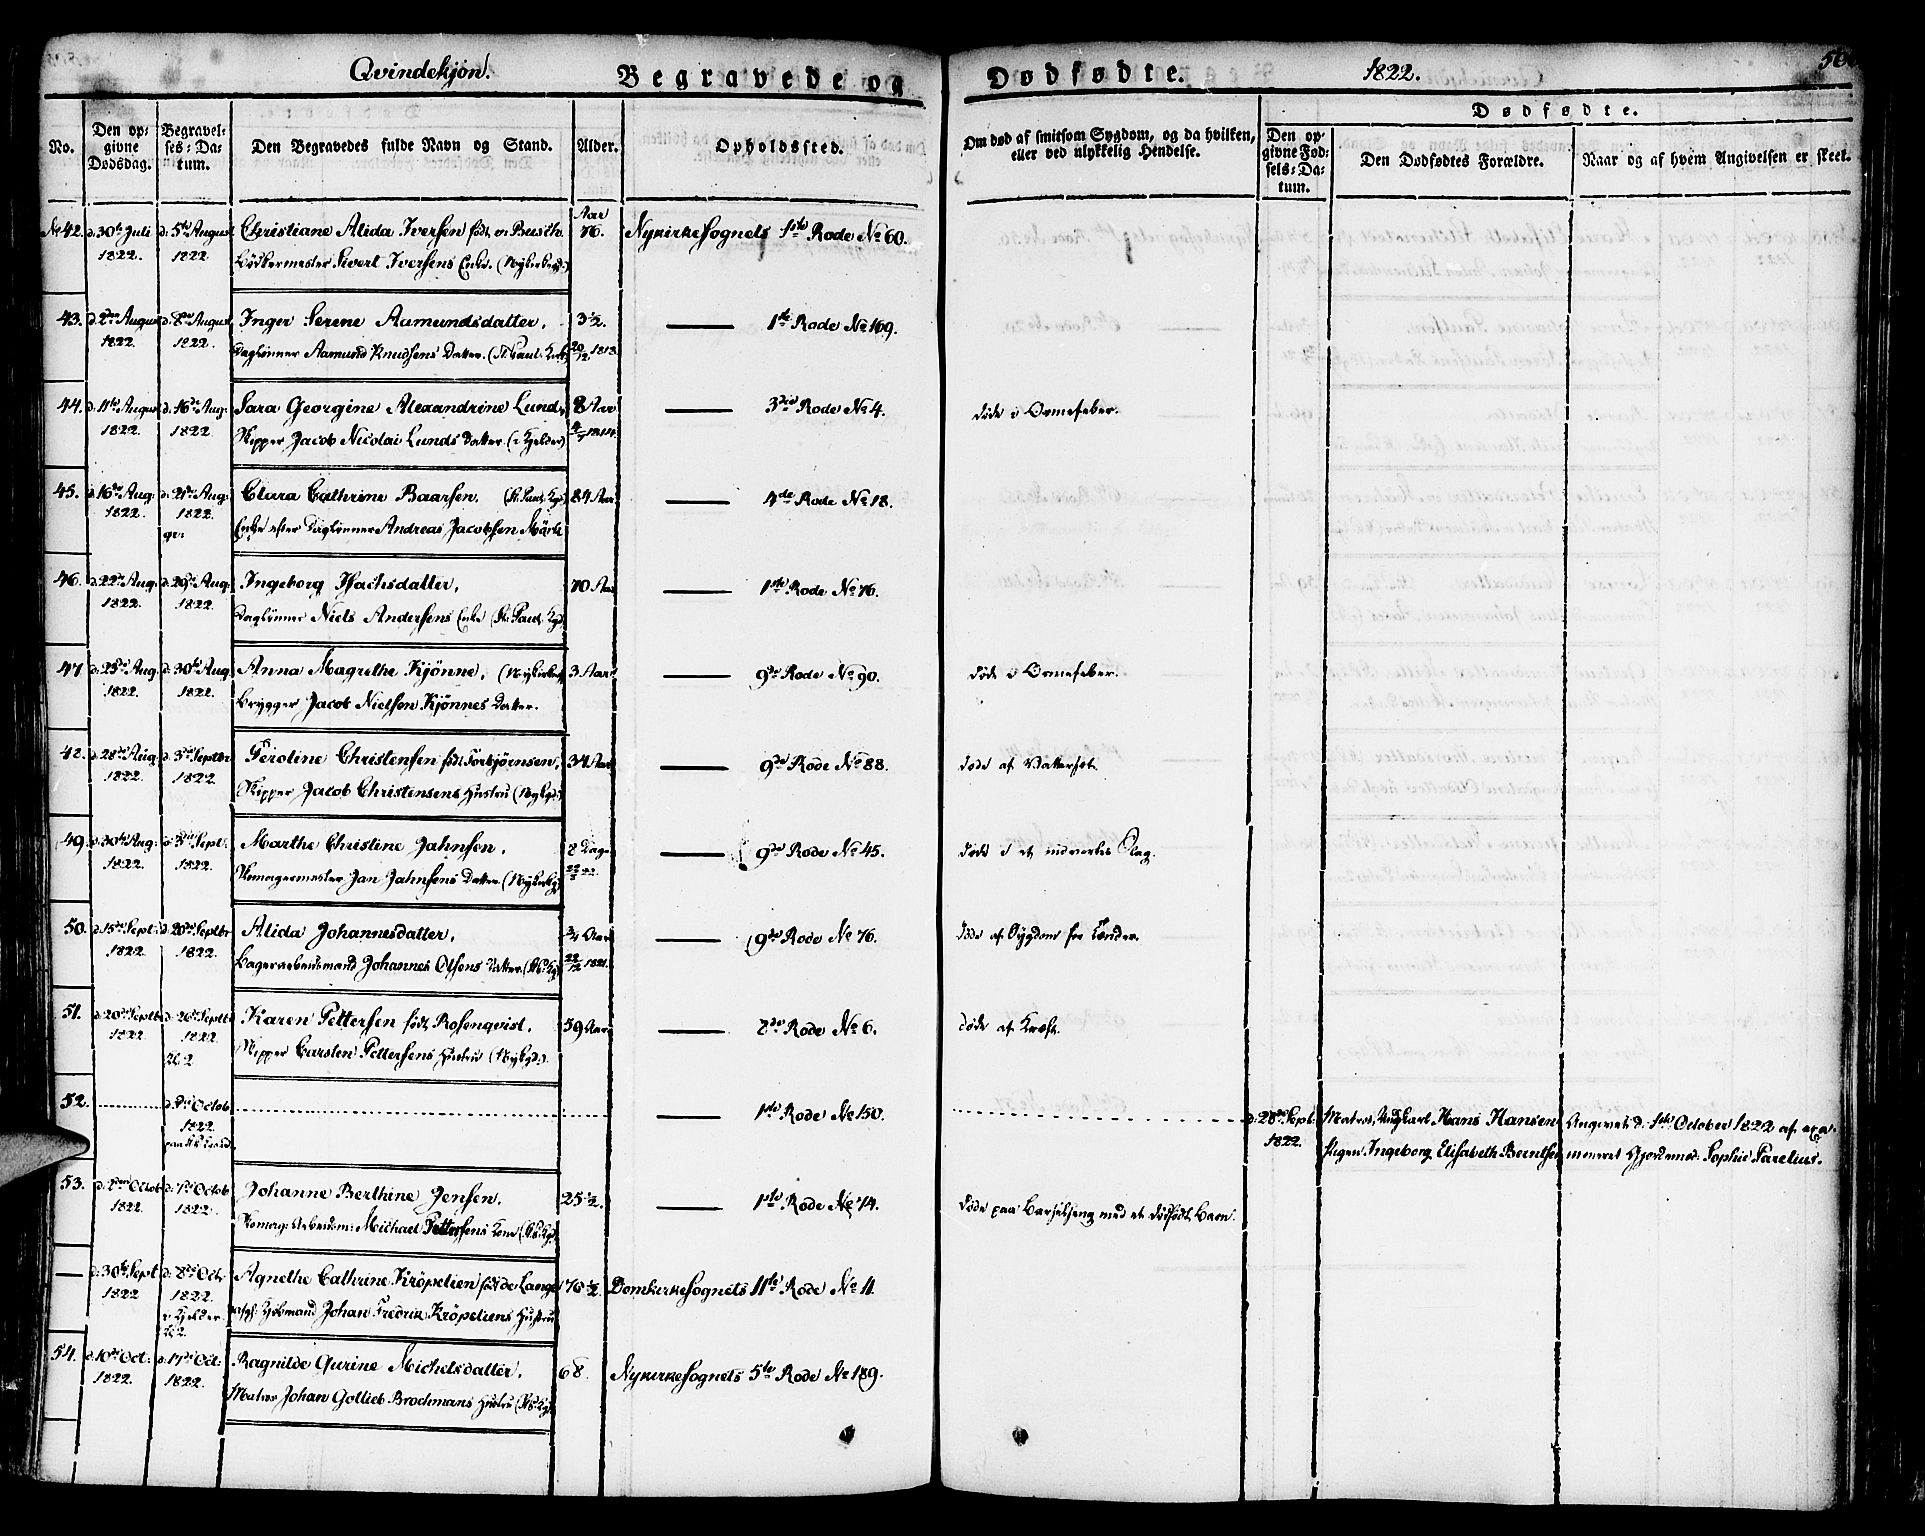 Qvindekjøn. Begravede og Dødfødte. 1822.
No. Den opgivne Dødsdag. Begravelses-Datum. Den Begravedes fulde Navn og Stand. Alder. Opholdssted. Om død af smitsom Sygdom, og da hvilken, eller ved ulykkelig Hendelse. Dødfødte. Den opgivne Fødsels-Datum. Den Dødfødtes Forældre. Naar og af hvem Angivelsen er skeet.
No 42. d. 30te Juli 1822. d. 5te August 1822. Christiane Alida Iversen født Busch. Aar 76. Nykirkesognets 1ste Rode No 60.
Bødkermester Sivert Iversens Enke. (Nykirkeg.)
43. d. 2den August 1822. d. 8de August 1822. Inger Serene Aamundsdatter. 3½. 1ste Rode No 169.
Daglønner Aamund Knudsens Datter. (St. Pauls Kirkg)
44. d. 11te August 1822. d. 16de Aug: 1822. Sara Georgine Alexandrine Lund, 8 Aar 3die Rode No 4. døde i Ormefeber.
Skipper Jacob Nicolai Lunds Datter. (i Kjelder)
45. d. 16de Aug: 1822. d. 21de Aug: 1822. Clara Cathrine Baarsen. (St. Pauls Kgd) 84 Aar 4de Rode No 18.
Enke efter Daglønner Andreas Jacobsen Mörck
46. d. 22de Aug: 1822. d. 29de Aug: 1822. Ingeborg Isachsdatter, 70 Aar 1ste Rode No 76.
Daglønner Niels Andersens Enke (St. Pauls Kgd)
47 d. 25de Aug. 1822. d. 30te Aug 1822. Anna Magrethe Kjönne, (Nykirkeg) 3 Aar 9de Rode No 90. døde i Ormefeber.
Brygger Jacob Nielsen Kjönnes Datter.
48. d. 28de Aug. 1822. d. 3die Septbr 1822. Peroline Christensen født Torbjörnsen, 34 Aar 9de Rode No 88. døde af Vattersot.
Skipper Jacob Christensens Hustru (Nykgd)
49. d. 30te Aug: 1822. d. 3die Sept. 1822. Marthe Christine Jahnsen, 8 Dage 9de Rode No 45. døde i et indvortes Slag.
Skomagermester Jan Jahnsens Datter. (Nykirkg)
50. d. 15de Sept. 1822. d. 20de Septbr 1822. Alida Johannesdatter, ¾ Aar 22/12 1821. 9de Rode No 76. døde af Sygdom for Tænder.
Bagerarbeidsmand Johannes Olsens Datter. (St. P. Kg)
51. d. 20de Septbr 1822. d. 26de Septbr 1822. Karen Pettersen født Rosenqvist, 59 Aar 8de Rode No 6. døde af Kræft.
Skipper Carsten Pettersens Hustru (Nykgd.)
52. d. 2den Octob 1822. 1ste Rode No 150. d. 28de Sept. 1822. Matros, Ungkarl Hans Hansen Angivet d. 1ste October 1822 af exa-
Pigen Ingeborg Elisabeth Berntsen mineret Gjordemor Sophie Parelius.
53. d. 2den Octob 1822. d. 7de Octob 1822. Johanne Berthine Jensen, 25½. 1ste Rode No 14. døde paa Barselseng med et dødfødt Barn.
Skomag: Arbeidsm: Michael Pettersens Kone (St. P. Kg)
— d. 30te Sept 1822 d. 8de Oct. 1822. i Kjelder Agnethe Cathrine Kröpelien født de Lange 76½. Domkirkesognets 11te Rode No 11.
Kjøbmand Johan Fredrik Kröpeliens Hustru
54. d. 10de Oct: 1822. d. 17de Oct: 1822. Ragnilde Gurine Michelsdatter, 68. Nykirkesognets 5te Rode No 189.
Matros Johan Gottlieb Brochmans Hustru (St. P. Kg)